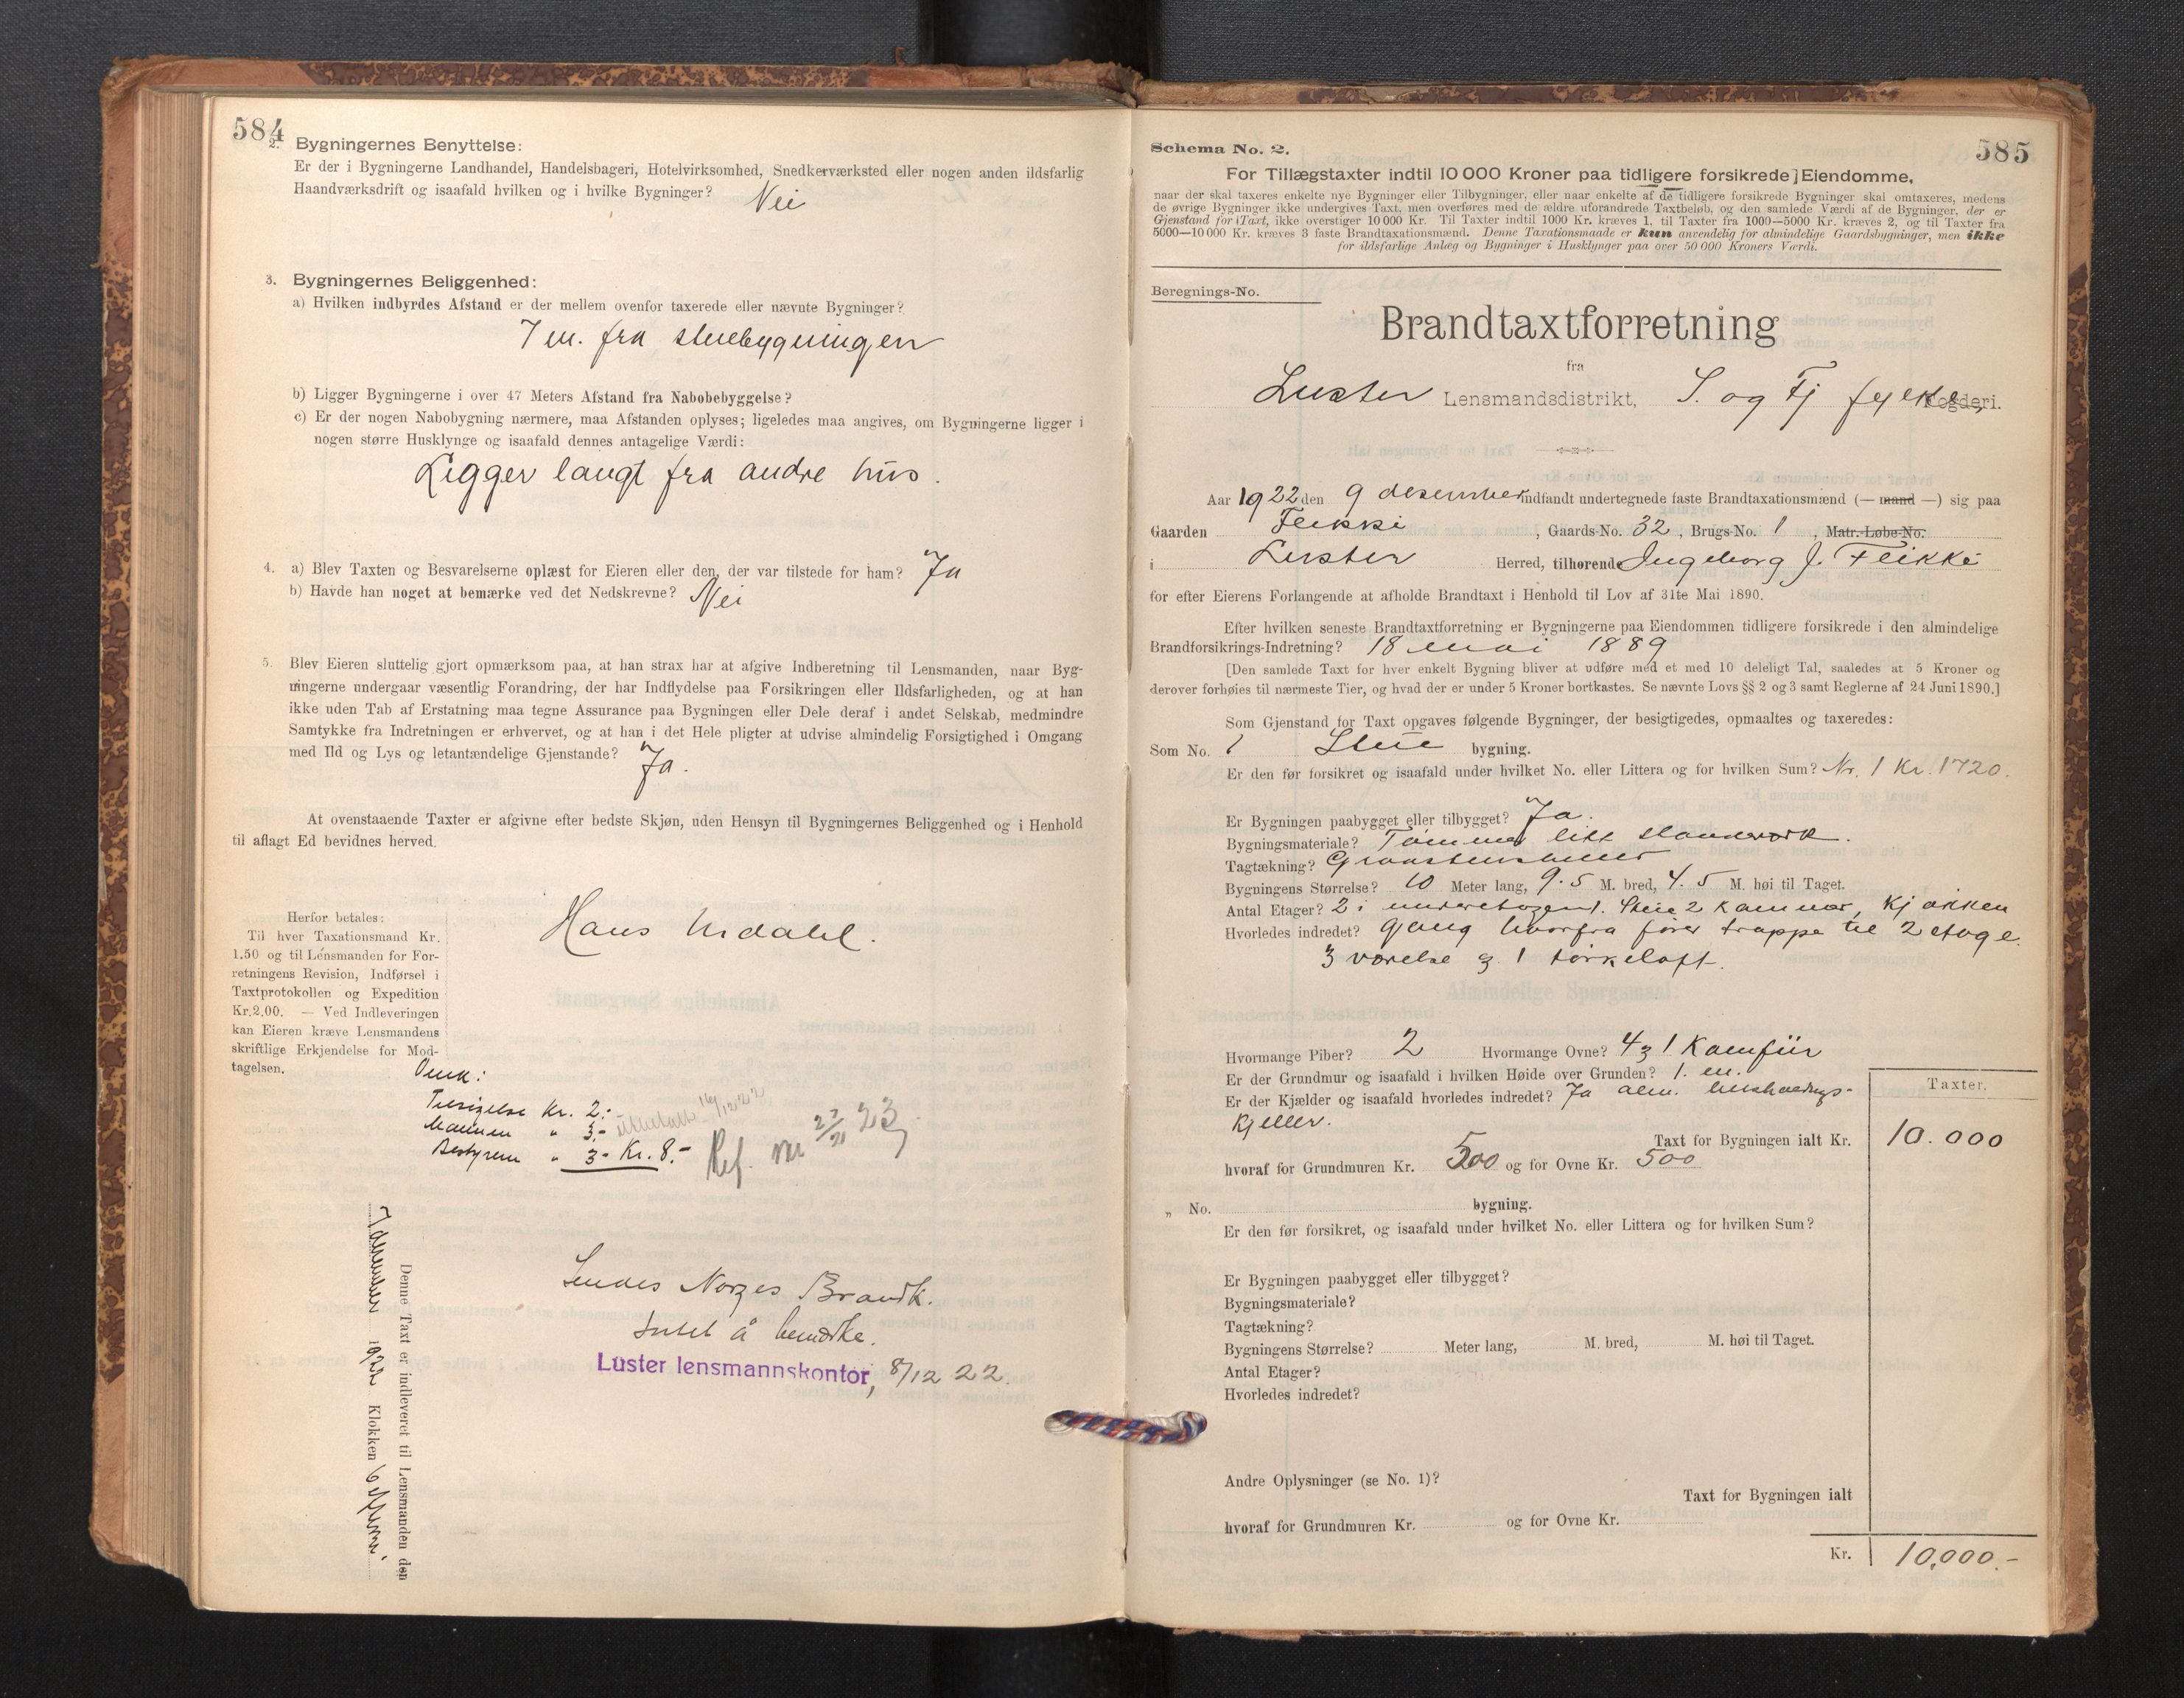 584
2. Bygningernes Benyttelse:
Er der i Bygningerne Landhandel, Handelsbageri, Hotelvirksomhed, Snedkerværksted eller nogen anden ildsfarlig
Haandværksdrift og isaafald hvilken og i hvilke Bygninger? Nei
3. Bygningernes Beliggenhed:
a) Hvilken indbyrdes Afstand er der mellem ovenfor taxerede eller nævnte Bygninger?
7 m. fra stuebygningen
b) Ligger Bygningerne i over 47 Meters Afstand fra Nabobebyggelse?
c) Er der nogen Nabobygning nærmere, maa Afstanden oplyses; ligeledes maa angives, om Bygningerne ligger i
nogen større Husklynge og isaafald dennes antagelige Værdi:
Ligger langt fra andre hus.
4. a) Blev Taxten og Besvarelserne oplæst for Eieren eller den, der var tilstede for ham? Ja
b) Havde han noget at bemærke ved det Nedskrevne? Nei
5. Blev Eieren sluttelig gjort opmærksom paa, at han strax har at afgive Indberetning til Lensmanden, naar Byg-
ningerne undergaar væsentlig Forandring, der har Indflydelse paa Forsikringen eller Ildsfarligheden, og at han
ikke uden Tab af Erstatning maa tegne Assurance paa Bygningen eller Dele deraf i andet Selskab, medmindre
Samtykke fra Indretningen er erhvervet, og at han i det Hele pligter at udvise almindelig Forsigtighed i Omgang
med Ild og Lys og letantændelige Gjenstande? Ja.
At ovenstaaende Taxter er afgivne efter bedste Skjøn, uden Hensyn til Bygningernes Beliggenhed og i Henhold
til aflagt Ed bevidnes herved.
Hans Urdahl.
Herfor betales:
Til hver Taxationsmand Kr.
1.50 og til Lensmanden for For-
retningens Revision, Indførsel i
Taxtprotokollen og Expedition
Kr. 2.00. — Ved Indleveringen
kan Eieren kræve Lensmandens
skriftlige Erkjendelse for Mod-
tagelsen.
Kr. 2.-
" 3.- 16/12 22
Bestyreren " 3- Kr. 8.-
Ref. 23
Denne Taxt er indleveret til Lensmanden den
7 desember 1922 Klokken 6
Sendes Norges Brandk.
Intet å bemerke.
Luster lensmannskontor, 8/12 22.
585
Schema No. 2.
For Tillægstaxter indtil 10 000 Kroner paa tidligere forsikrede Eiendomme,
naar der skal taxeres enkelte nye Bygninger eller Tilbygninger, eller naar enkelte af de tidligere forsikrede Bygninger skal omtaxeres, medens
de øvrige Bygninger ikke undergives Taxt, men overføres med de ældre uforandrede Taxtbeløb, og den samlede Værdi af de Bygninger, der er
Gjenstand for Taxt, ikke overstiger 10 000 Kr. Til Taxter indtil 1000 Kr. kræves 1, til Taxter fra 1000—5000 Kr. kræves 2, og til Taxter fra
5000—10 000 Kr. kræves 3 faste Brandtaxationsmænd. Denne Taxationsmaade er kun anvendelig for almindelige Gaardsbygninger, men ikke
for ildsfarlige Anlæg og Bygninger i Husklynger paa over 50 000 Kroners Værdi.
Beregnings-No.
Brandtaxtforretning
fra
Luster Lensmandsdistrikt, S. og Fj fylke, Fogderi.
Aar 1922 den 9 desember indfandt undertegnede faste Brandtaxationsmænd (— mand —) sig paa
Gaarden Flikki, Gaards-No. 32, Brugs-No. 1, Matr.-Løbe-No.
i Luster Herred, tilhørende Ingeborg J. Flikki
for efter Eierens Forlangende at afholde Brandtaxt i Henhold til Lov af 31te Mai 1890.
Efter hvilken seneste Brandtaxtforretning er Bygningerne paa Eiendommen tidligere forsikrede i den almindelige
Brandforsikrings-Indretning? 18 mai 1889
[Den samlede Taxt for hver enkelt Bygning bliver at udføre med et med 10 deleligt Tal, saaledes at 5 Kroner og
derover forhøies til nærmeste Tier, og hvad der er under 5 Kroner bortkastes. Se nævnte Lovs §§ 2 og 3 samt Reglerne af 24 Juni 1890.]
Som Gjenstand for Taxt opgaves følgende Bygninger, der besigtigedes, opmaaltes og taxeredes:
Som No. 1 Stue bygning.
Er den før forsikret og isaafald under hvilket No. eller Littera og for hvilken Sum? Nr. 1 Kr. 1720.
Er Bygningen paabygget eller tilbygget? Ja.
Bygningsmateriale? Tømmer litt standverk.
Tagtækning? Graasteinsheller
Bygningens Størrelse? 10 Meter lang, 9.5 M. bred, 4.5 M. høi til Taget.
Antal Etager? 2 i underetagen 1. Stue 2 Kammer, kjøkken
Hvorledes indredet? gang hvorfra fører trappe til 2 etage.
3 værelse og 1 tørkeloft.
Hvormange Piber? 2 Hvormange Ovne? 4 og 1 Komfür
Er der Grundmur og isaafald i hvilken Høide over Grunden? 1. m.
Er der Kjælder og isaafald hvorledes indredet? Ja alm. husholdnings-
kjeller.
Taxter.
Taxt for Bygningen ialt Kr. 10.000
hvoraf for Grundmuren Kr. 500 og for Ovne Kr. 500
„ No. bygning.
Er den før forsikret, og isaafald under hvilket No. eller Littera og for hvilken Sum?
Er Bygningen paabygget eller tilbygget?
Bygningsmateriale?
Tagtækning?
Bygningens Størrelse? Meter lang, M. bred, M. høi til Taget.
Antal Etager?
Hvorledes indredet?
Andre Oplysninger (se No. 1)?
Taxt for Bygningen ialt
hvoraf for Grundmuren Kr. og for Ovne Kr.
Kr. 10,000.-